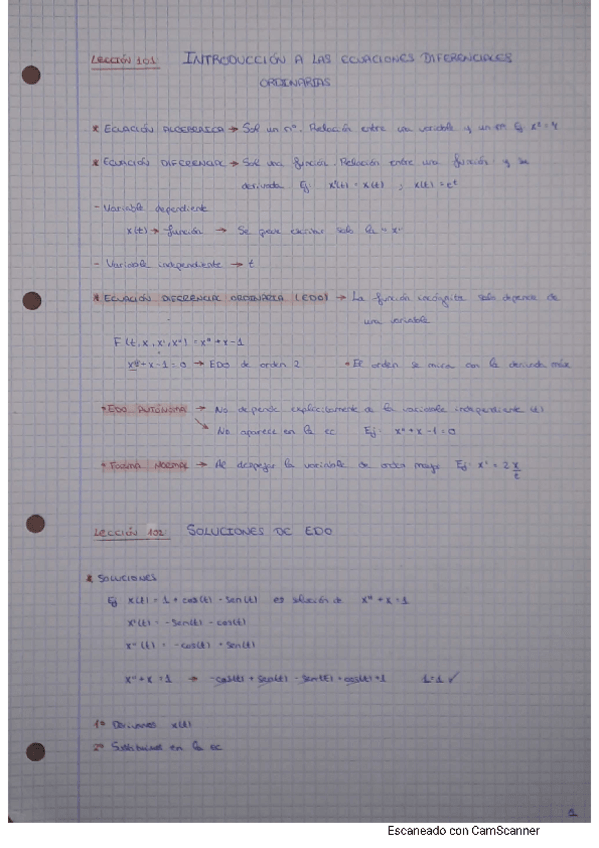 LECCIÓN 101 INTRODUCCIÓN A LAS ECUACIONES DIFERENCIALES
ORDINARIAS
* ECUACIÓN ALGEBRAICA → Sol un nº. Relación entre una variable y un nº. Ej x² = 4
* ECUACIÓN DIFERENCIAL → Sol una función. Relación entre una función y su
derivada. Ej: x'(t) = x(t) ; x(t) = e^t
- Variable dependiente
x(t) → función → Se puede escribir solo la = "x"
- Variable independiente → t
* ECUACIÓN DIFERENCIAL ORDINARIA (EDO) → La función incógnita solo depende de
una variable
F(t, x, x', x'') = x'' + x - 1
x'' + x - 1 = 0 → EDO de orden 2 * El orden se mira con la derivada máx
* EDO AUTÓNOMA → No depende explícitamente de la variable independiente (t)
↘ No aparece en la ec Ej: x'' + x - 1 = 0
* FORMA NORMAL → despejar la variable de orden mayor Ej: x' = 2 x/t
LECCIÓN 102 SOLUCIONES DE EDO
* SOLUCIONES
Ej x(t) = 1 + cos(t) - sen(t) es solución de x'' + x = 1
x'(t) = - sen(t) - cos(t)
x''(t) = - cos(t) + sen(t)
x'' + x = 1 → - cos(t) + sen(t) - sen(t) + cos(t) + 1 1 = 1 ✓
1º Derivamos x(t)
2º Sustituimos en la ec
1
Escaneado con CamScanner